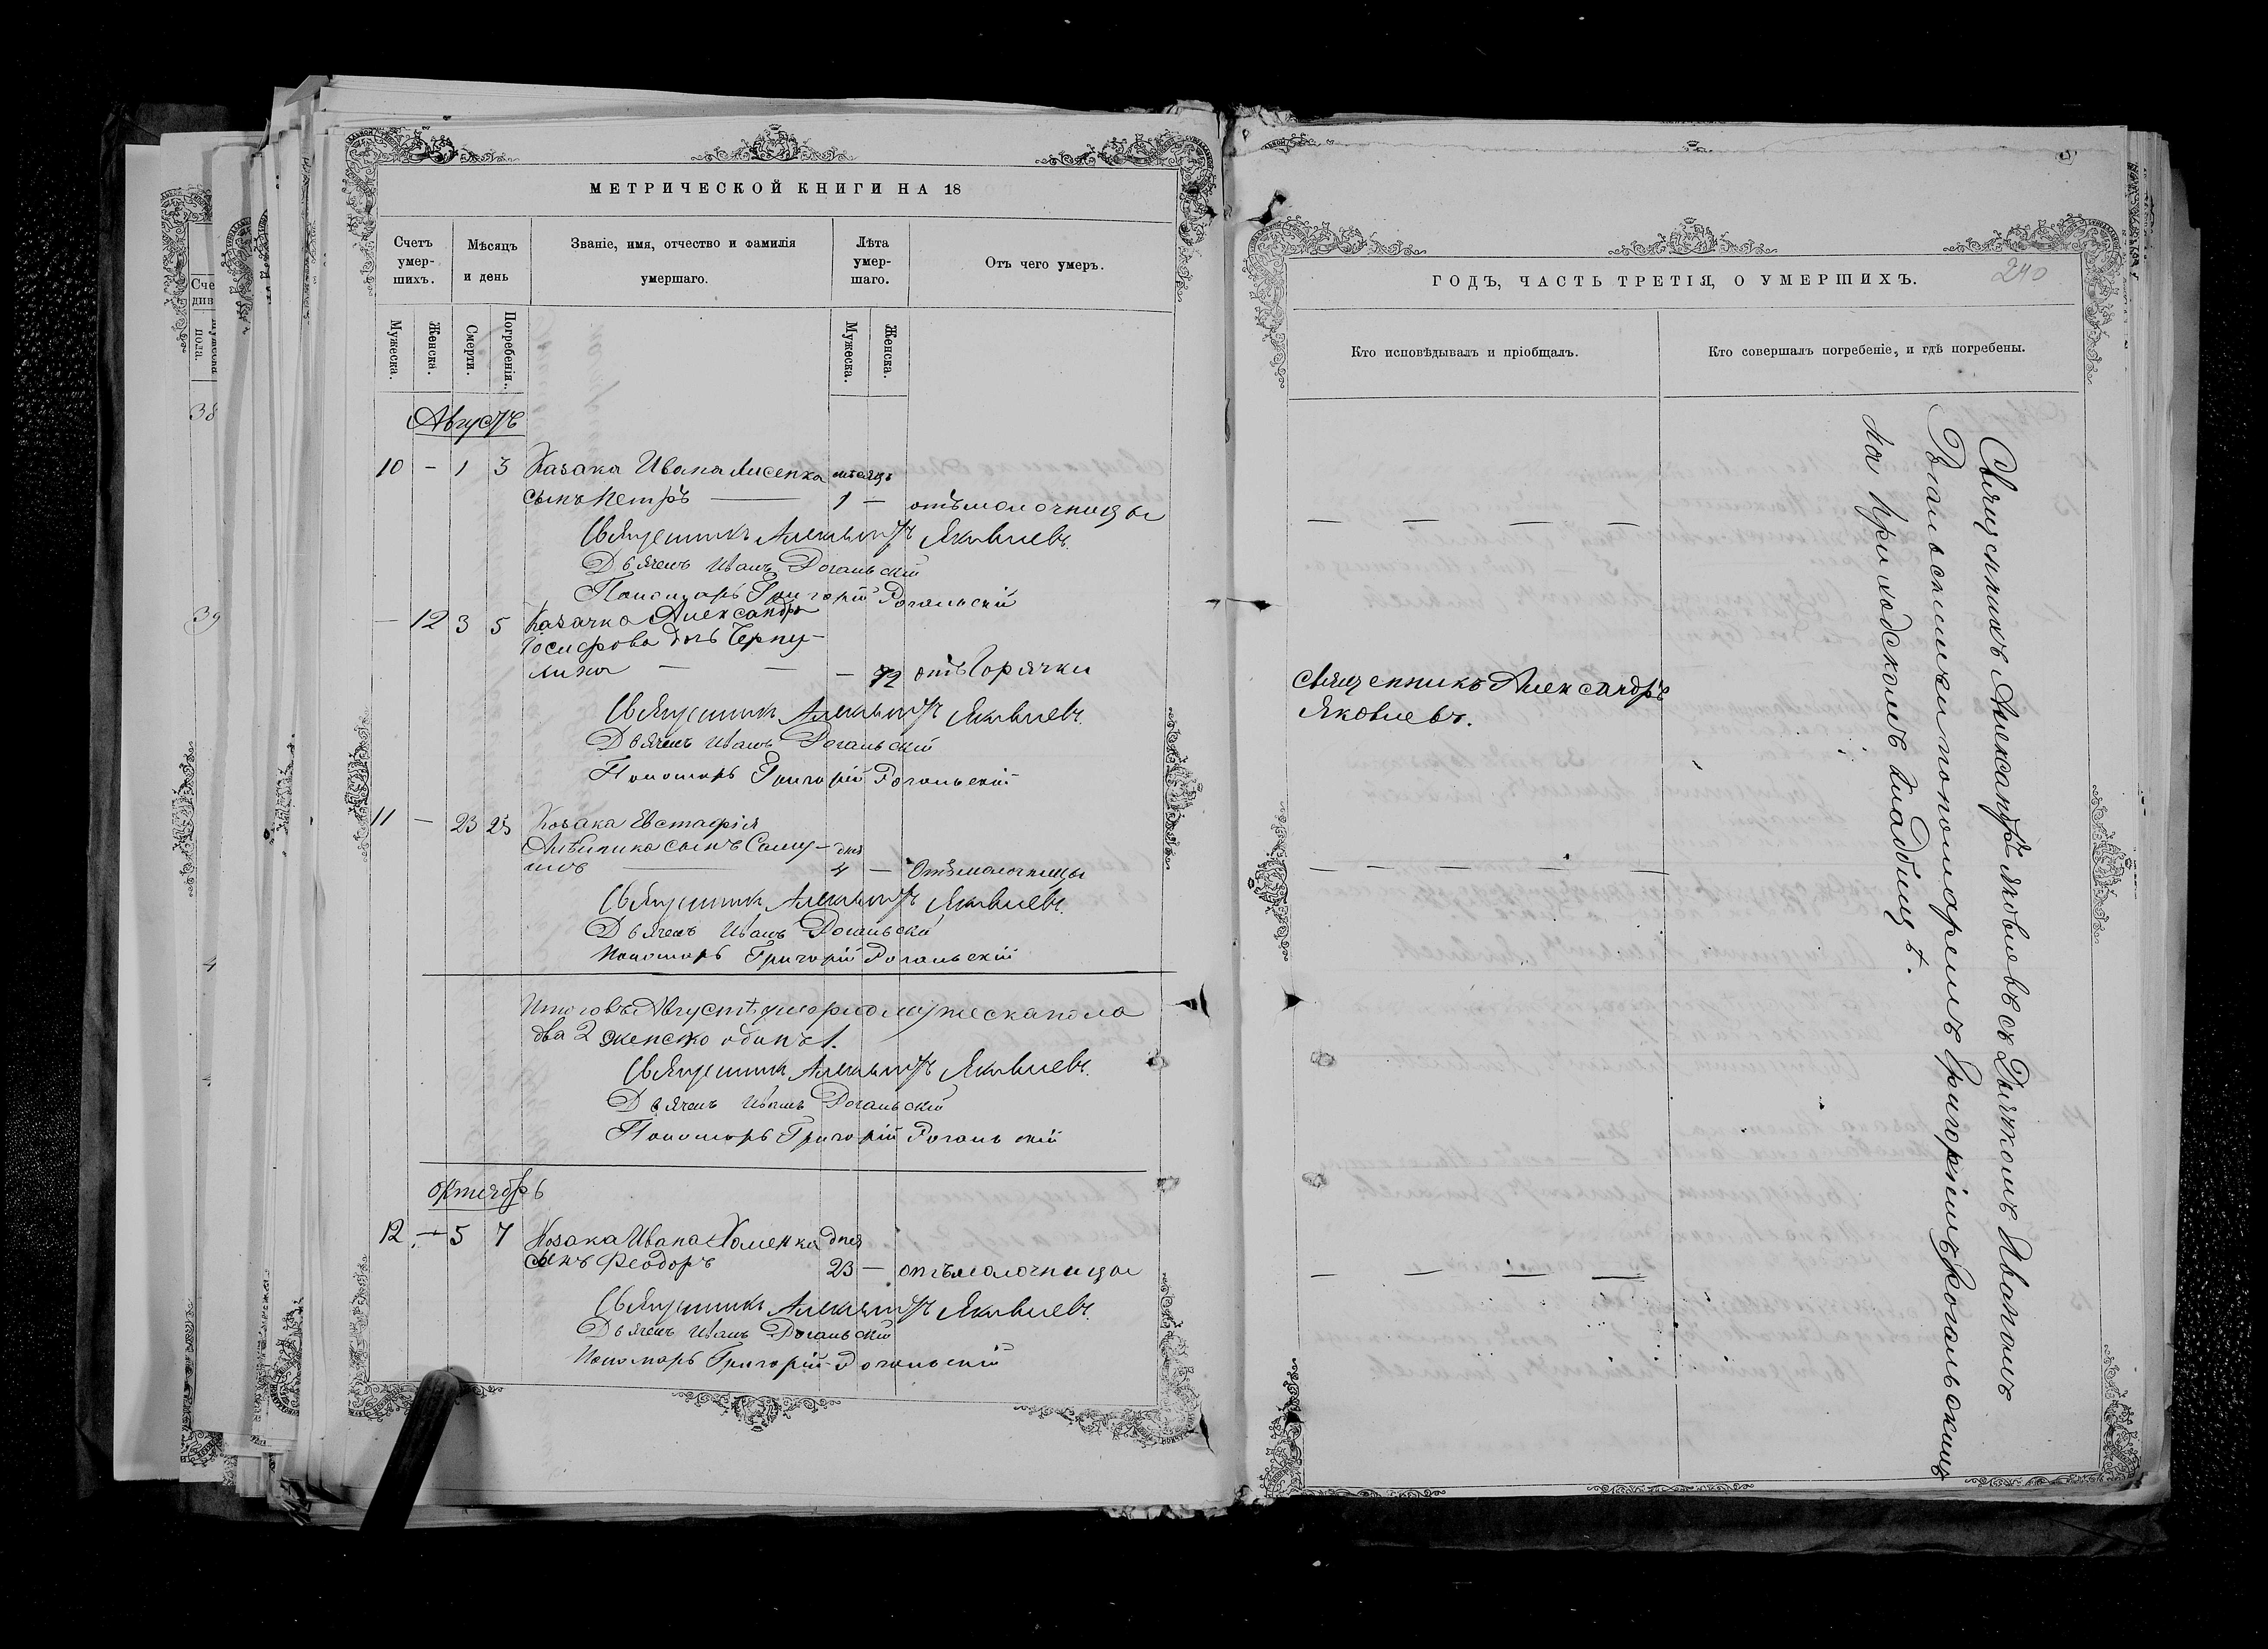 МЕТРИЧЕСКОЙ КНИГИ НА 18
Счетъ умер- шихъ.
Мѣсяцъ и день
Званіе, имя, отчество и фамилія умершаго.
Лѣта умер- шаго.
Отъ чего умеръ.
Мужеска.
Женска.
Смерти.
Погребенія.
Мужеска.
Женска.
Августъ
10 - 1 3 Казака Ивана Лисенка мѣсяцъ
сынъ Петръ 1 — отъ молочницы
Священникъ Александръ Яковлевъ.
Дьячекъ Иванъ Рогальскій
Пономарь Григорій Рогальскій
— 12 3 5 Казачка Александра
Іосифова дочь Черну-
— 72 отъ Горячки
Священникъ Александръ Яковлевъ.
Дьячекъ Иванъ Рогальскій
Пономарь Григорій Рогальскій
11 — 23 25 Козака Евстафія
сынъ Саму- дня
илъ 4 — Отъ молочницы
Священникъ Александръ Яковлевъ.
Дьячекъ Иванъ Рогальскій
Пономарь Григорій Рогальскій
Итого въ Августѣ умерло мужеска пола
два 2 женско одинъ 1.
Священникъ Александръ Яковлевъ.
Дьячекъ Иванъ Рогальскій
Пономарь Григорій Рогальскій
октябрь
12 — 5 7 Козака Ивана Хоменка дня
сынъ Феодоръ 23 — отъ молочницы
Священникъ Александръ Яковлевъ.
Дьячекъ Иванъ Рогальскій
Пономарь Григорій Рогальскій
ГОДЪ, ЧАСТЬ ТРЕТІЯ, О УМЕРШИХЪ.
240
Кто исповѣдывалъ и пріобщалъ.
Кто совершалъ погребеніе, и гдѣ погребены.
Священникъ Александръ
Яковлевъ.
Священникъ Александръ Яковлевъ съ Дьячкомъ Иваномъ
Рогальскимъ и пономаремъ Григоріемъ Рогальскимъ
на приходскомъ кладбищѣ.
38
39